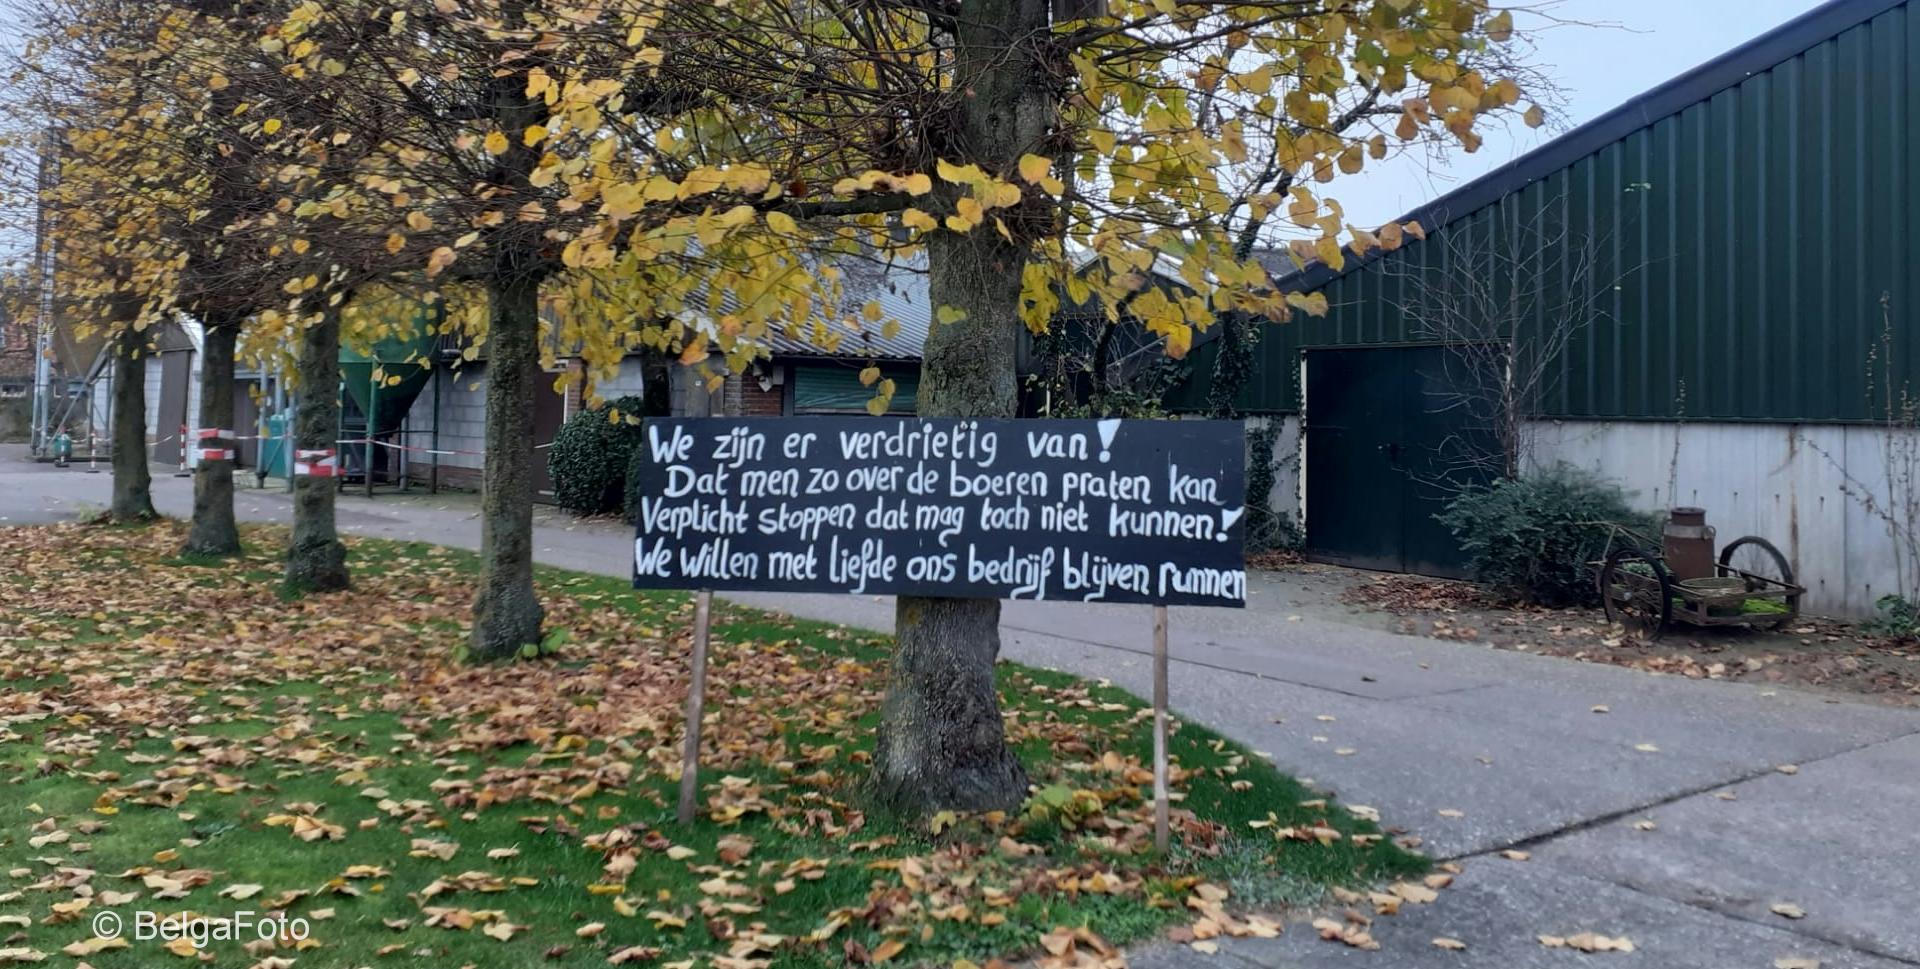 We zijn er verdrietig van!
Dat men zo over de boeren praten kan
Verplicht stoppen dat mag toch niet kunnen!
We willen met liefde ons bedrijf blijven runnen
© BelgaFoto